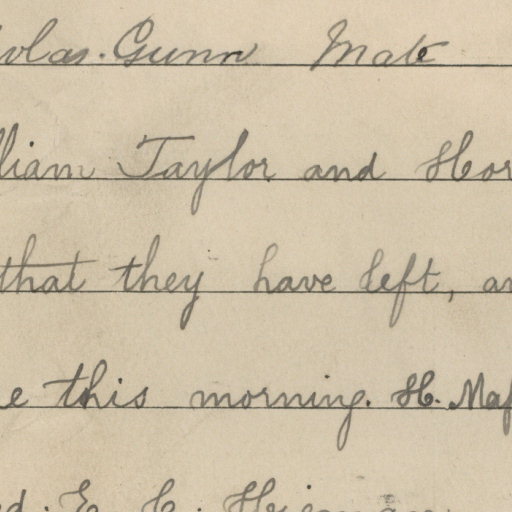 olas. Gunn Mate
lliam Taylor and Hor
that they have left, an
e this morning. H. Maf
d. E. H.